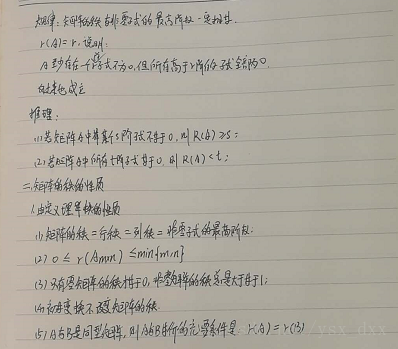 规律:矩阵的秩与非零子式的最高阶数一定相等.
r(A)=r,说明:
A至少存在一个r阶子式不为0,但所有高于r阶的子式全部为0
反过来也成立
推理:
(1)若矩阵A中有某个s阶子式不等于0,则R(A)≥s;
(2)若矩阵A中所有t阶子式等于0,则R(A)<t;
二.矩阵的秩的性质
1.由定义理解秩的性质
(1)矩阵的秩=行秩=列秩=非零子式的最高阶数.
(2) 0≤r(Amxn)≤min{m,n}
(3)只有零矩阵的秩才等于0,非零矩阵的秩总是大于等于1;
(4)初等变换不改变矩阵的秩.
(5)A与B是同型矩阵,则A与B等价的充要条件是 r(A)=r(B)